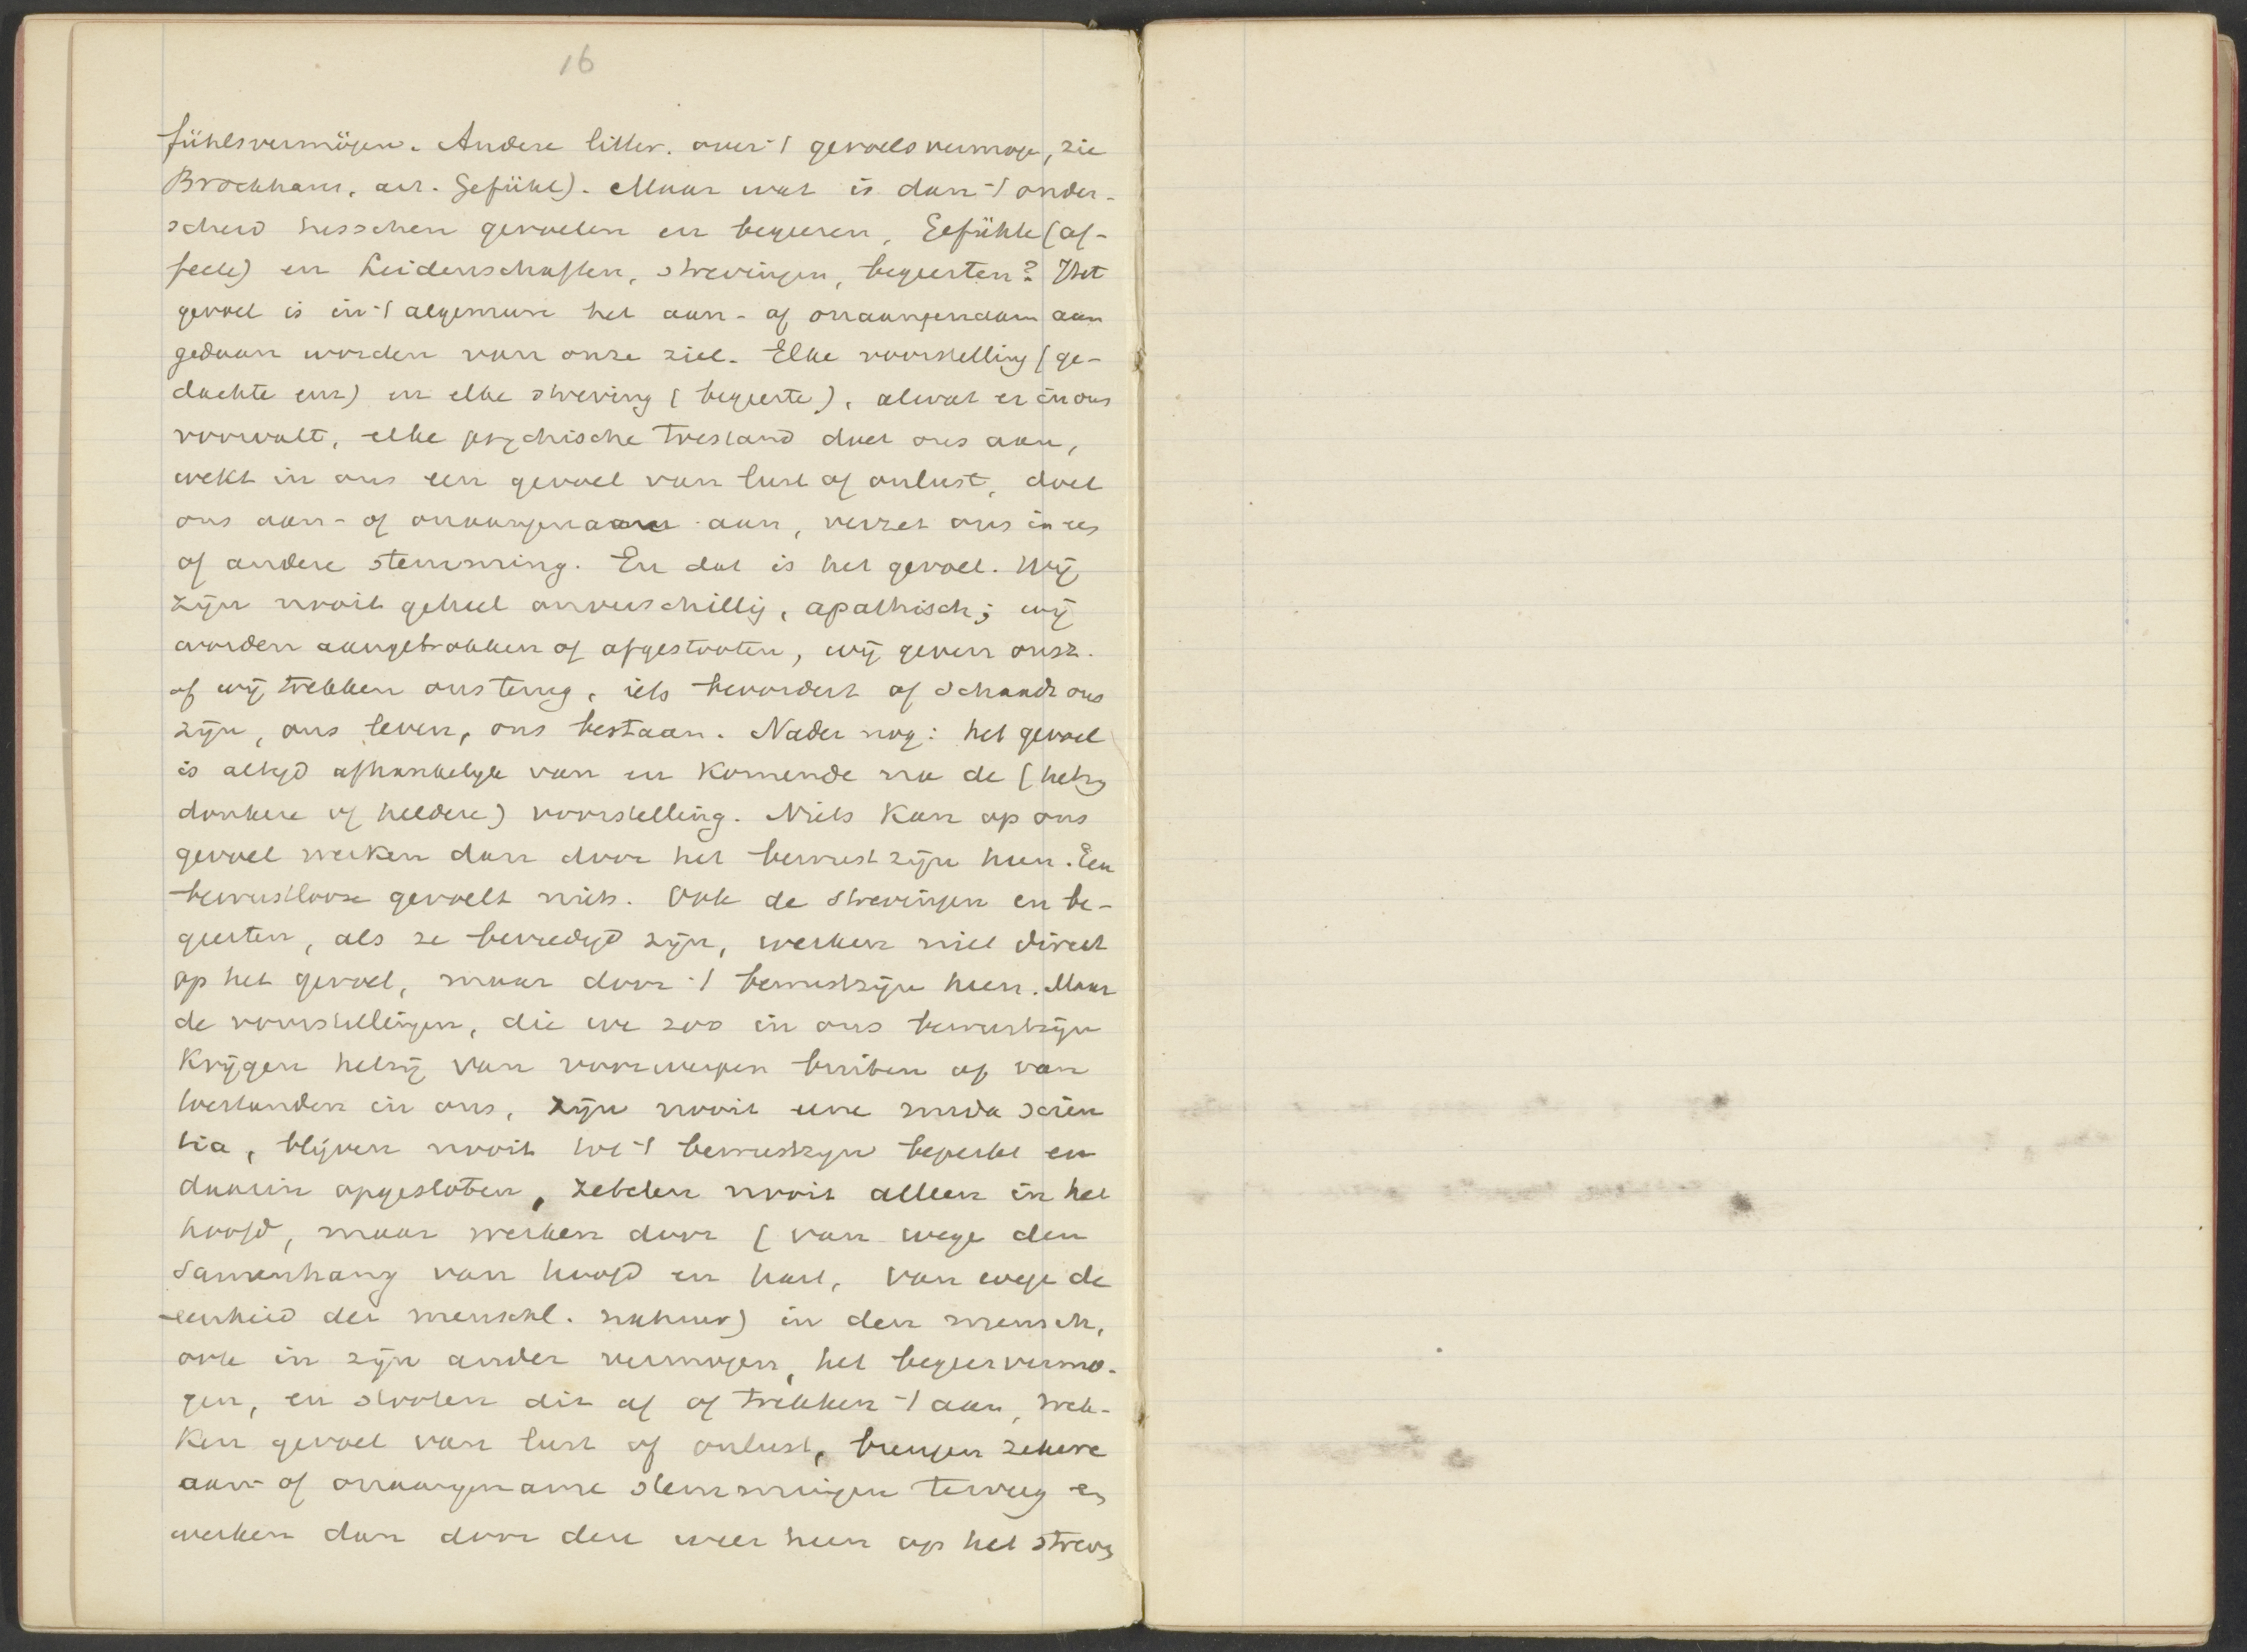 16
fühlsvermögen. Andere litter. over 't gevoelsvermogen, zie
Brockhaus, art. Gefühl). Maar wat is dan 't onder-
scheid tusschen gevoelen en begeeren, Gefühle (af-
fecte) en Leidenschaften, strevingen, begeerten? Het
gevoel is in 't algemeen het aan- of onaangenaam aan
gedaan worden van onze ziel. Elke voorstelling (ge-
dachte enz) en elke streving (begeerte), alwat er in ons
voorvalt, elke psychische toestand doet ons aan,
wekt in ons een gevoel van lust of onlust, doet
ons aan- of onaangenaam aan, verzet ons in een
of andere stemming. En dat is het gevoel. Wij
zijn nooit geheel onverschillig, apathisch; wij
worden aangetrokken of afgestooten, wij geven ons z.
of wij trekken ons terug, iets bevordert of schaadt ons
zijn, ons leven, ons bestaan. Nader nog: het gevoel
is altijd afhankelijk van en komende na de (hetzij
donkere of heldere) voorstelling. Niets kan op ons
gevoel werken dan door het bewustzijn heen. Een
bewustlooze gevoelt niets. Ook de strevingen en be-
geerten, als ze bevredigd zijn, werken niet direct
op het gevoel, maar door 't bewustzijn heen. Maar
de voorstellingen, die we zoo in ons bewustzijn
krijgen hetzij van voorwerpen buiten of van
toestanden in ons, zijn nooit eene nuda scien
tia, blijven nooit tot 't bewustzijn beperkt en
daarin opgesloten, zetelen nooit alleen in het
hoofd, maar werken door (van wege den
samenhang van hoofd en hart, van wege de
eenheid der menschl. natuur) in den mensch,
ook in zijn ander vermogen, het begeervermo-
gen, en stooten dit af of trekken 't aan, wek-
ken gevoel van lust of onlust, brengen zekere
aan- of onaangename stemmingen teweeg en
werken dan door deze weer heen op het streven